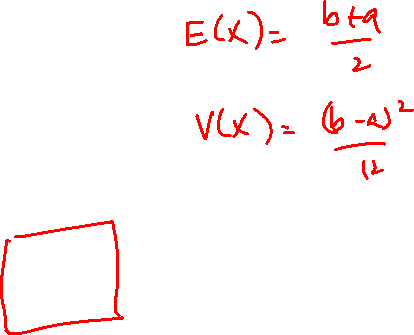 E(X) = \frac{b+a}{2}
V(X) = \frac{(b-a)^2}{12}